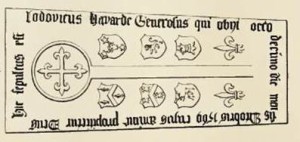 Hic sepultus est
lodovicus Havarde Generosus qui obyt octo
decimo die men
sis Octobris 1569 cujus anime propitietur Deus